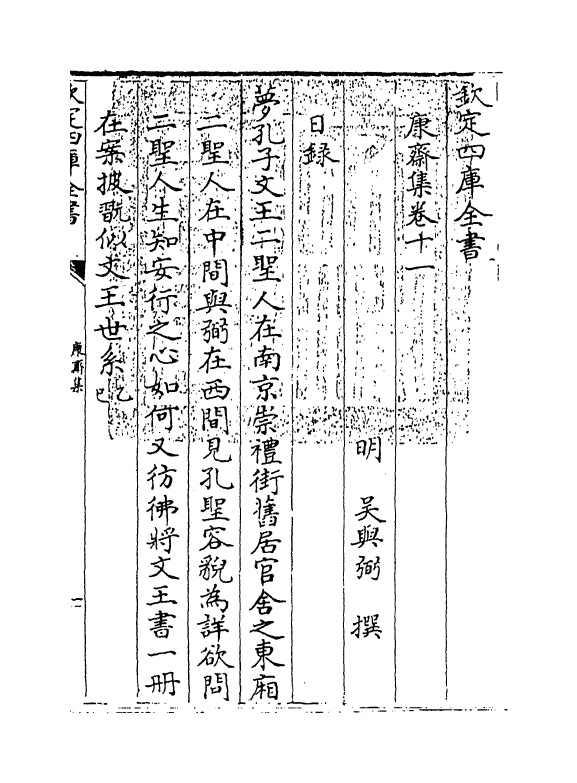 欽定四庫全書
康齋集卷十一
明 吳與弼 撰
日録
夢孔子文王二聖人在南京崇禮街舊居官舍之東廂
二聖人在中間與弼在西間見孔聖容貌為詳欲問
二聖人生知安行之心如何又彷彿將文王書一冊
在案披翫似文王世系乙巳
欽定四庫全書
康齋集
一